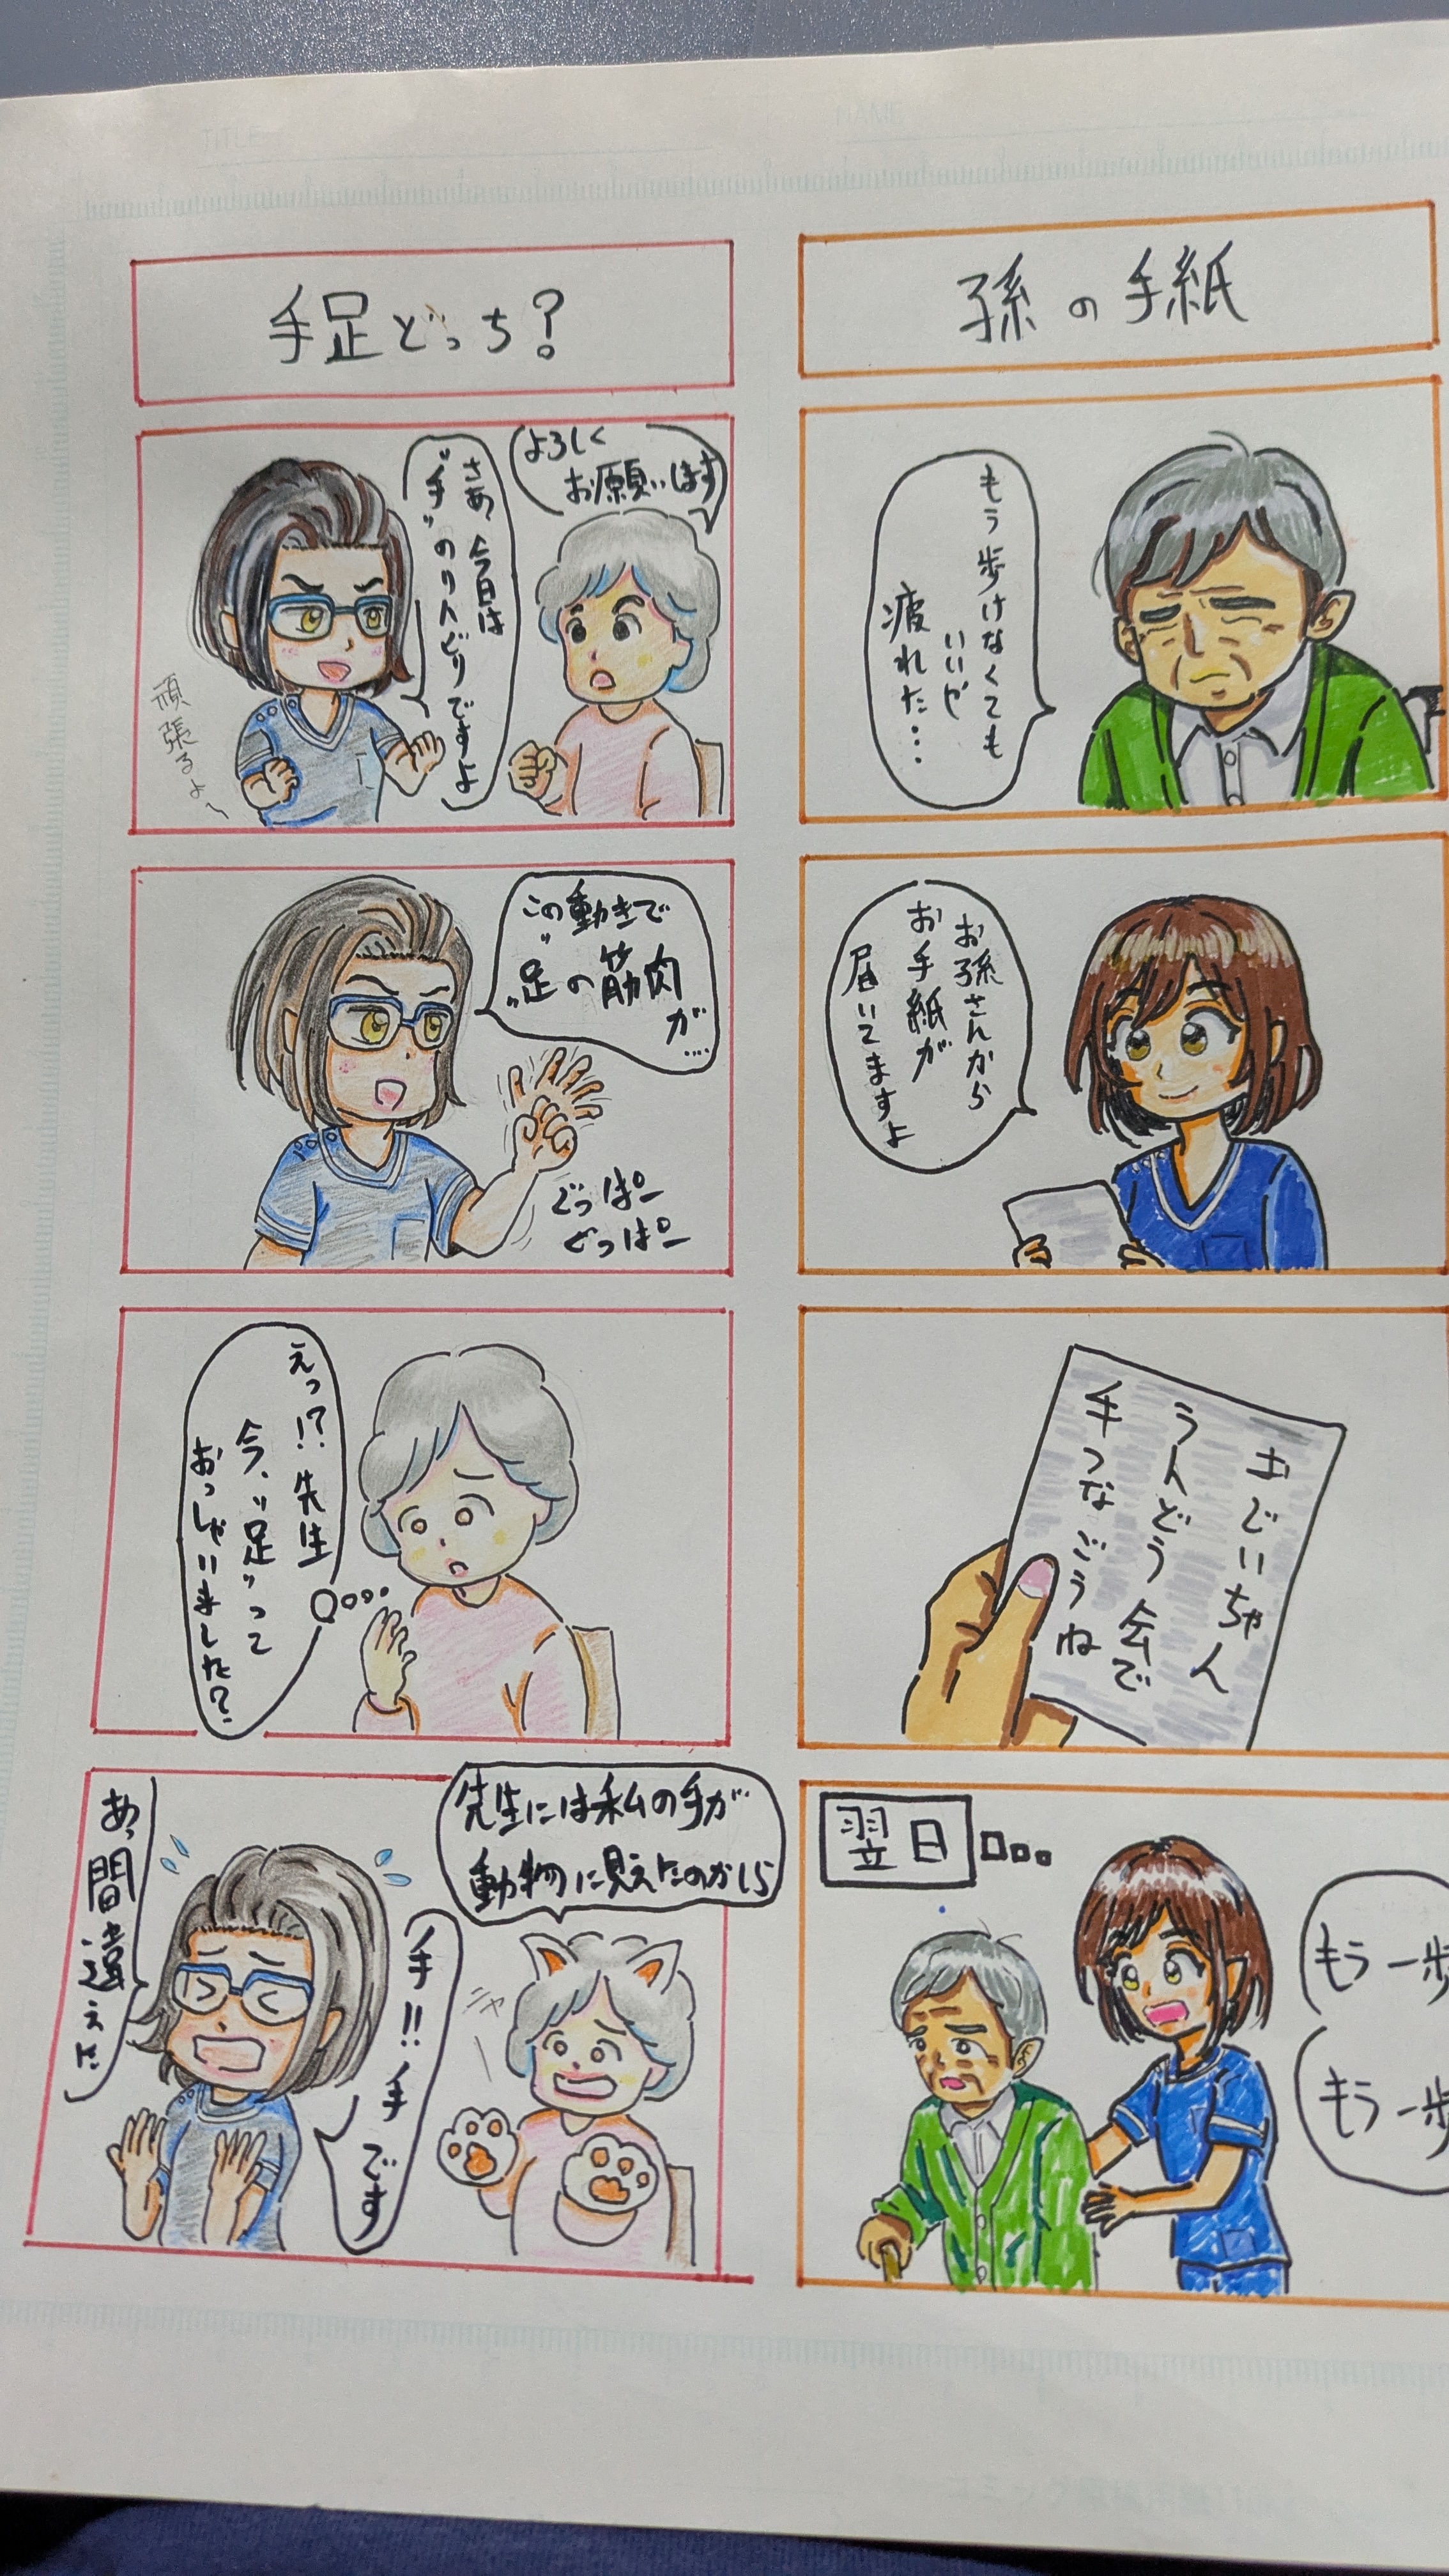 TITLE
NAME
孫の手紙
もう歩けなくても
いいや
疲れた…
お孫さんから
お手紙が
届いてますよ
おじいちゃん
うんどう会で
手つなごうね
翌日
もう一歩
もう一歩
手足どっち?
よろしく
お願いします
さあ、今日は
"手"のリハビリですよ
頑張るよ〜
この動きで
"足"の筋肉
が…
ぐっぱー
ぐっぱー
えっ!?先生
今、"足"って
おっしゃいました?
先生には私の手が
動物に見えたのかしら
ニャー
手!!手です
あっ間違えた